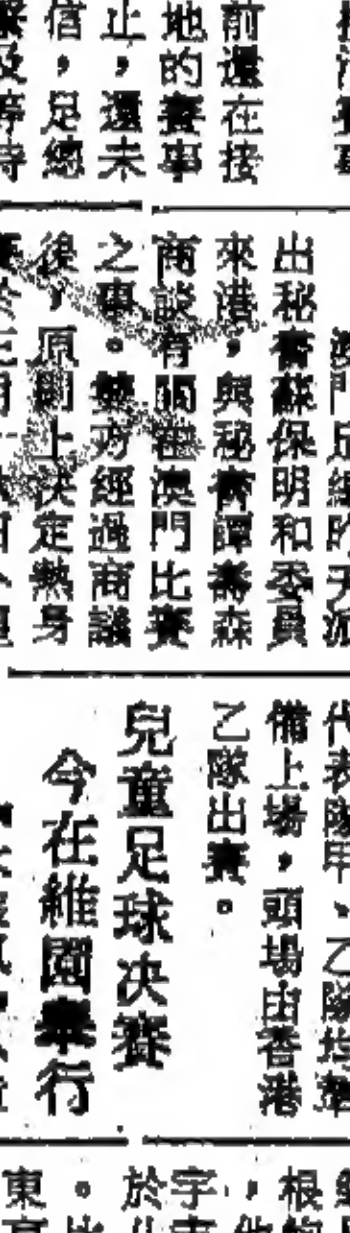 前還在接
地的賽事
止，還未
信，足總
澳門足總昨天派
出秘書蘇保明和委員
來港，與秘書譚壽森
商談有關港澳門比賽
之事。雙方經過商議
後，原則上決定熱身
代表隊甲、乙隊均準
備上場，頭場由香港
乙隊出賽。
兒童足球決賽
今在維園舉行
根
，
宇
於
。
東